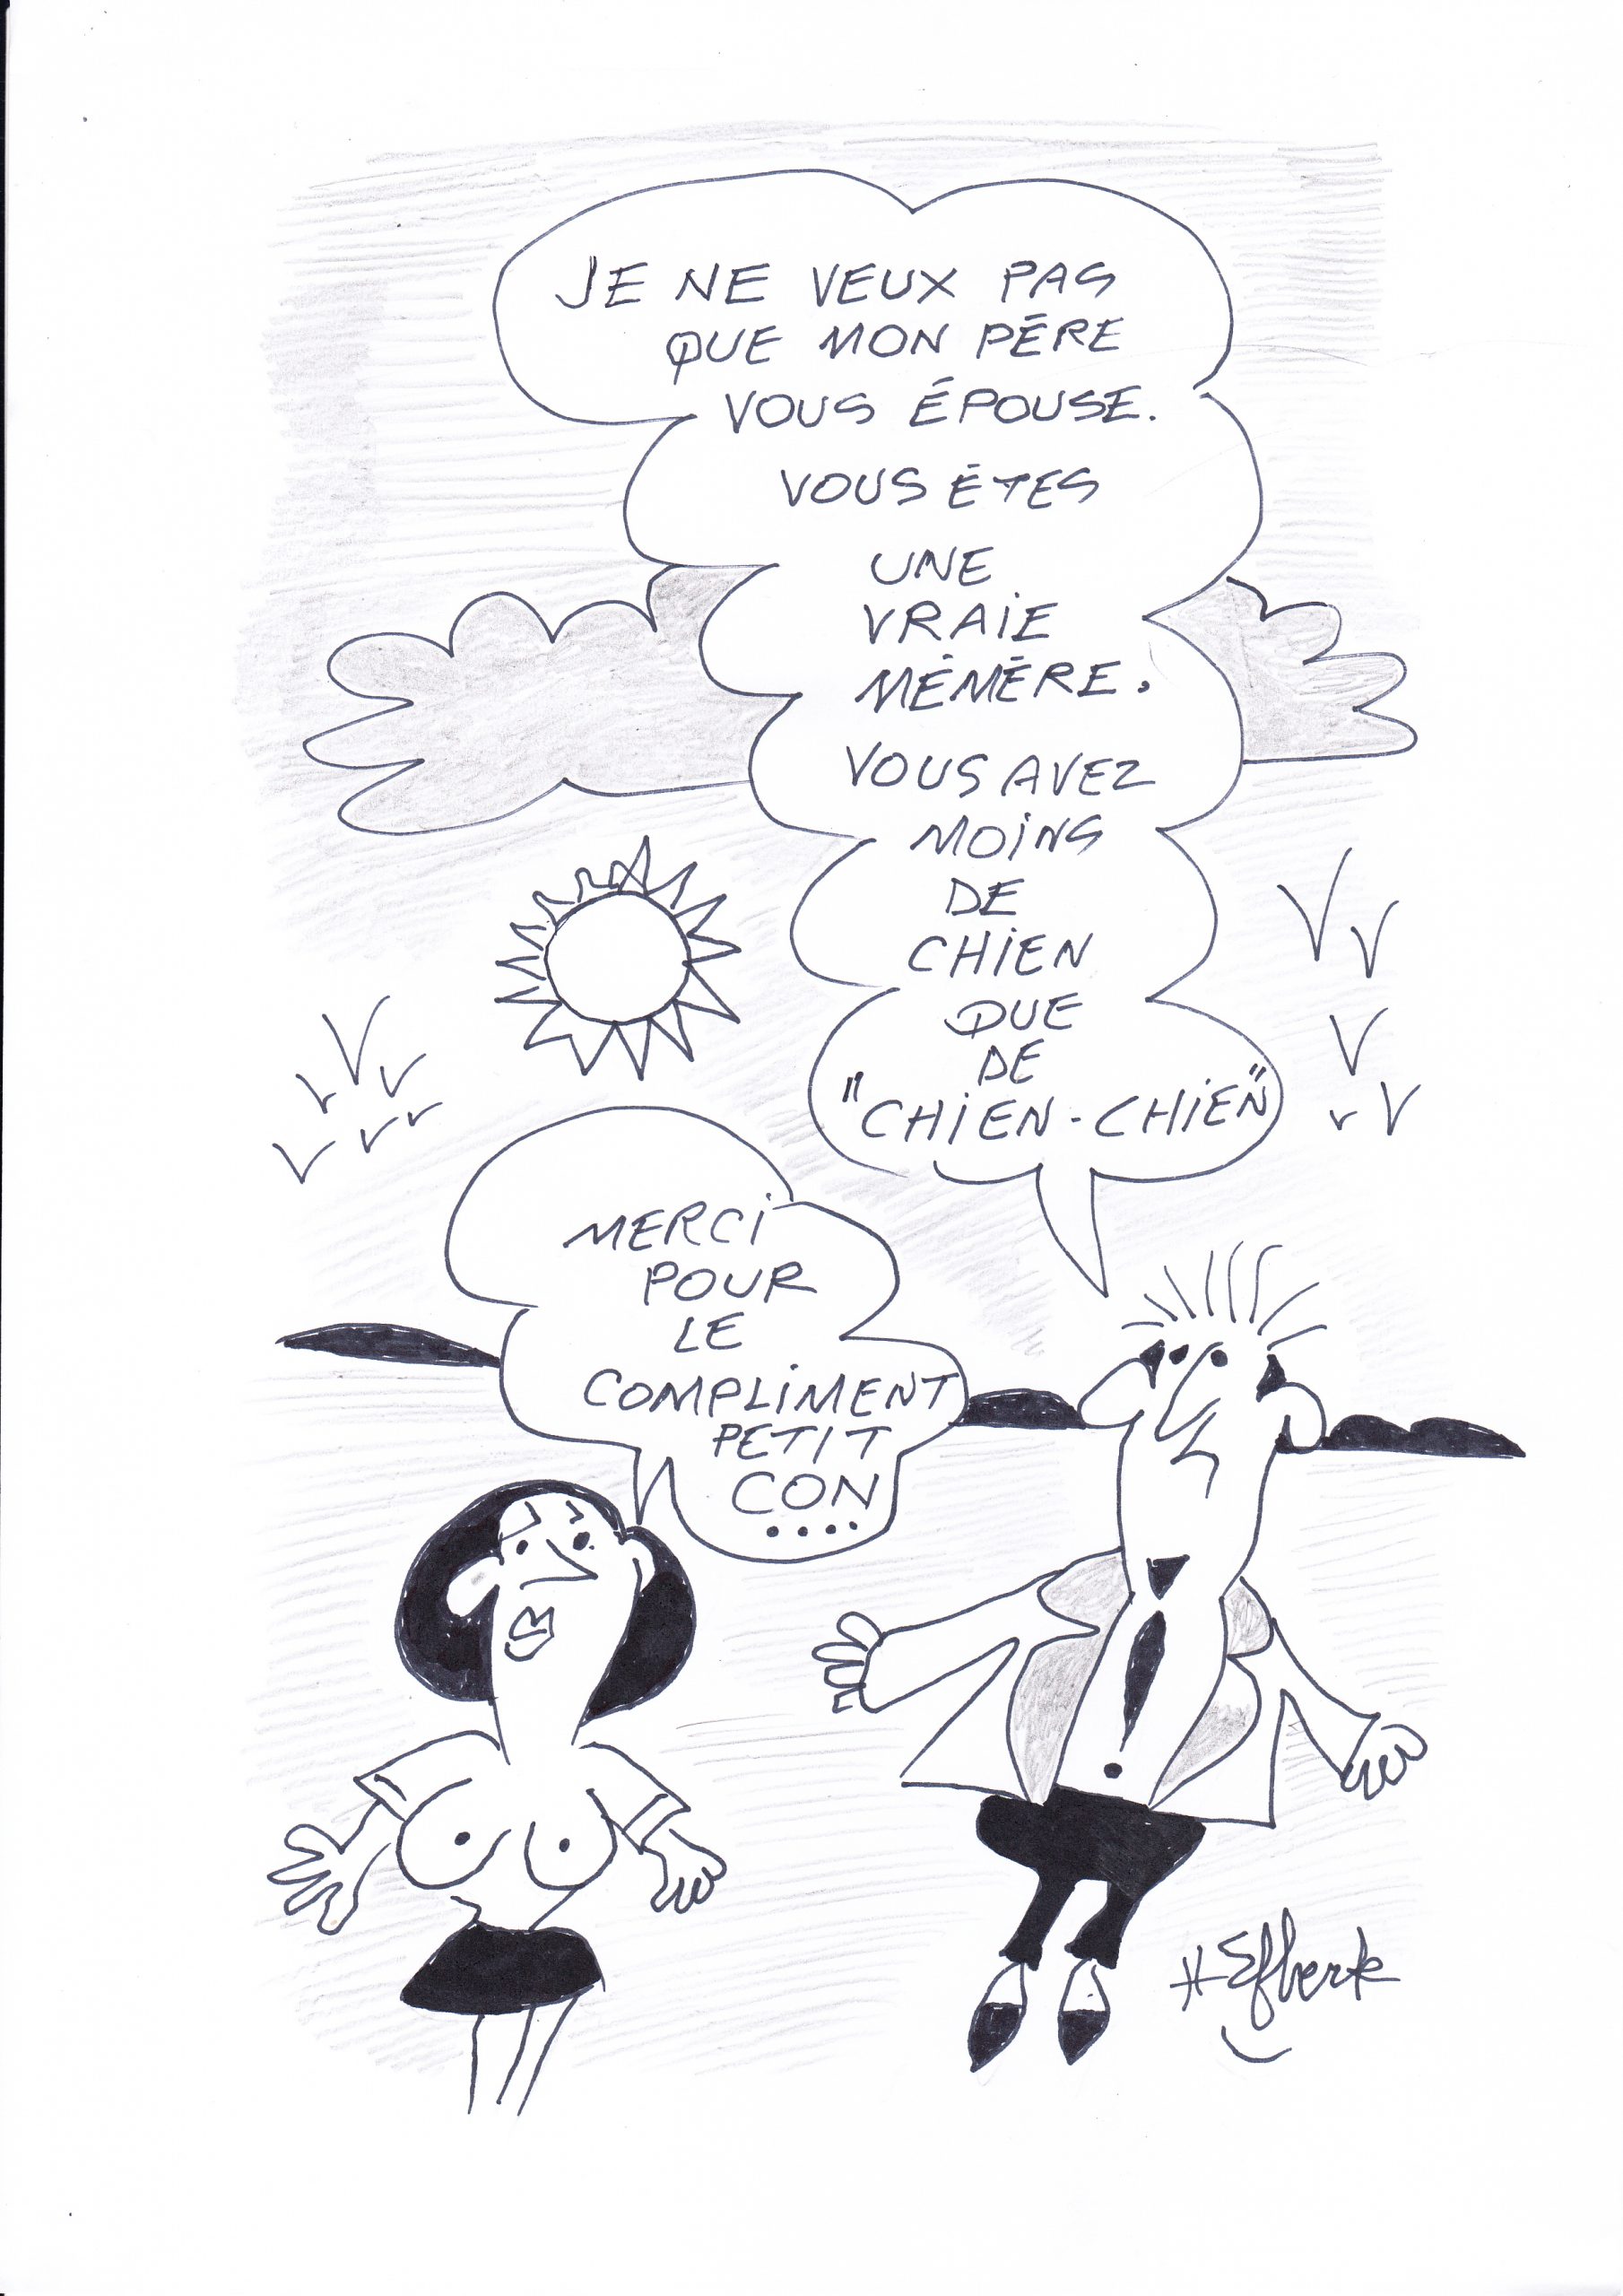 JE NE VEUX PAS
QUE MON PÈRE
VOUS ÉPOUSE.
VOUS ÊTES
UNE
VRAIE
MÉMÈRE.
VOUS AVEZ
MOINS
DE
CHIEN
QUE
DE
"CHIEN-CHIEN"
MERCI
POUR
LE
COMPLIMENT
PETIT
CON
....